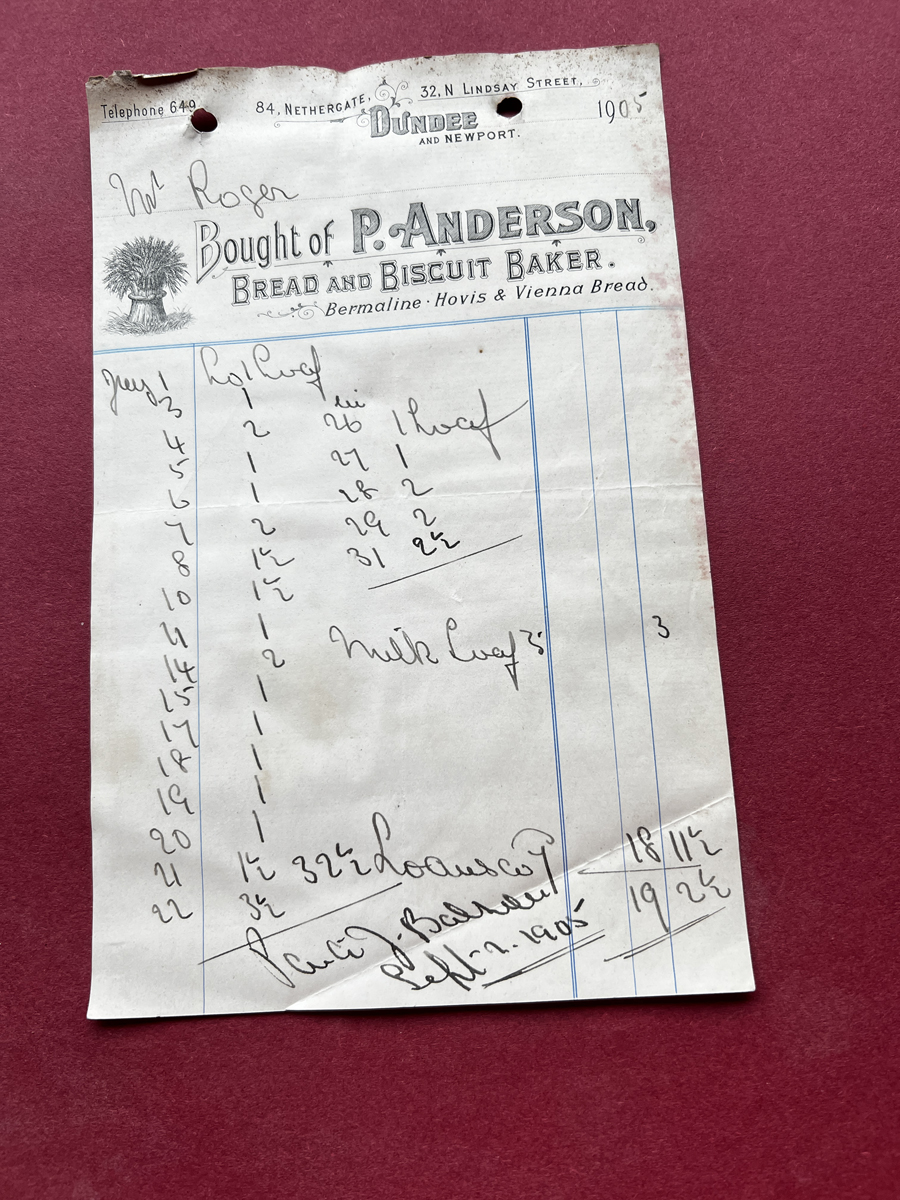 Telephone 649
84, NETHERGATE, 32, N LINDSAY STREET,
DUNDEE
AND NEWPORT.
1905
Mr Roger
Bought of P. ANDERSON,
BREAD AND BISCUIT BAKER.
Bermaline · Hovis & Vienna Bread.
1 1 Loaf
3 1
4 2 26 1 Loaf
5 1 27 1
6 1 28 2
7 2 29 2
8 1½ 31 2½
10 1½
11 1
14 2 Milk Loaf 3 3
15 1
17 1
18 1
19 1
20 1
21 1½ 32½ Loaves 18 11½
22 3½ 19 2½
Paid J.
Sept 2. 1905